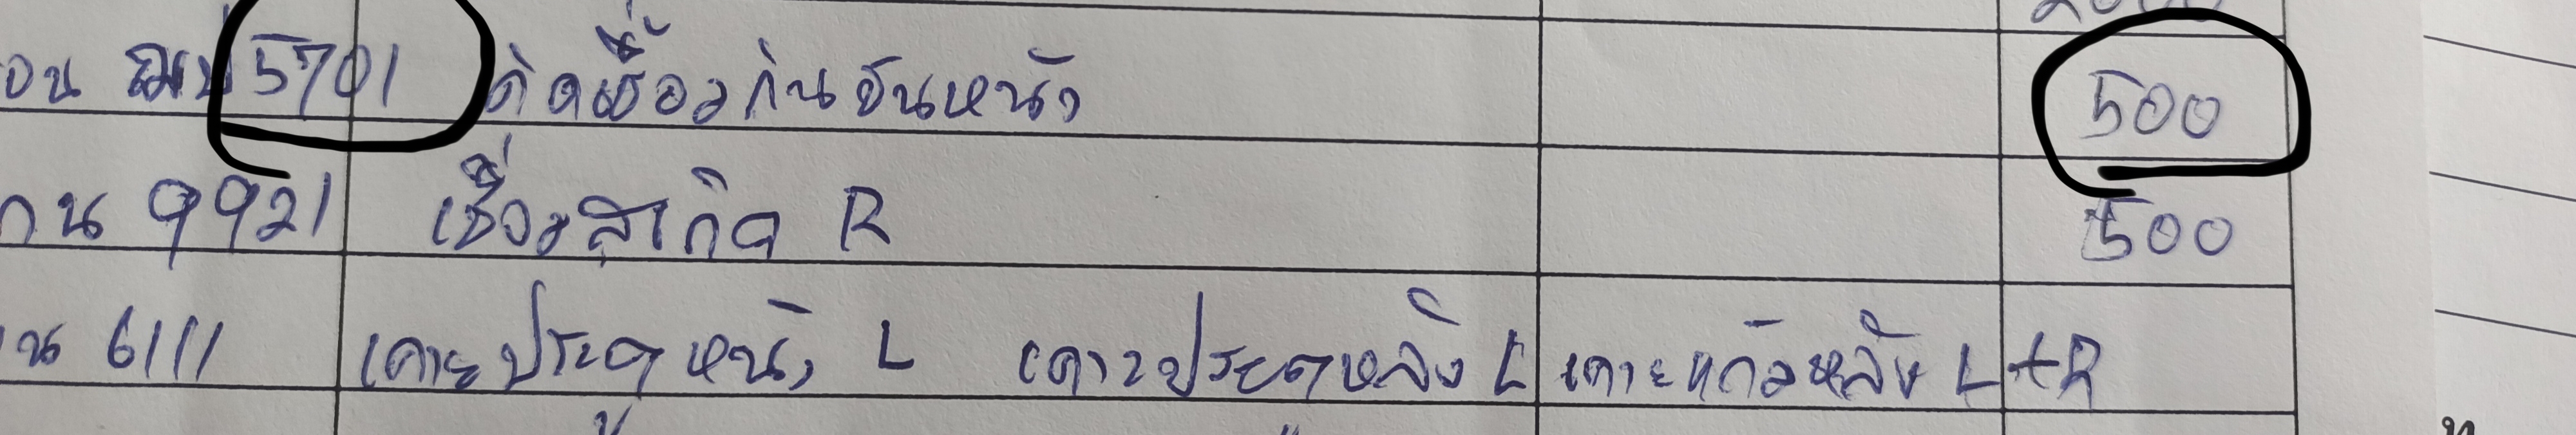 อน ฌป 5701 ติดเชื่อมกันชนหน้า 500
กน 9921 เชื่อมสเกิต R 500
น 6111 เคาะประตูหน้า L เคาะประตูหลัง L เคาะแก้มหลัง L+R